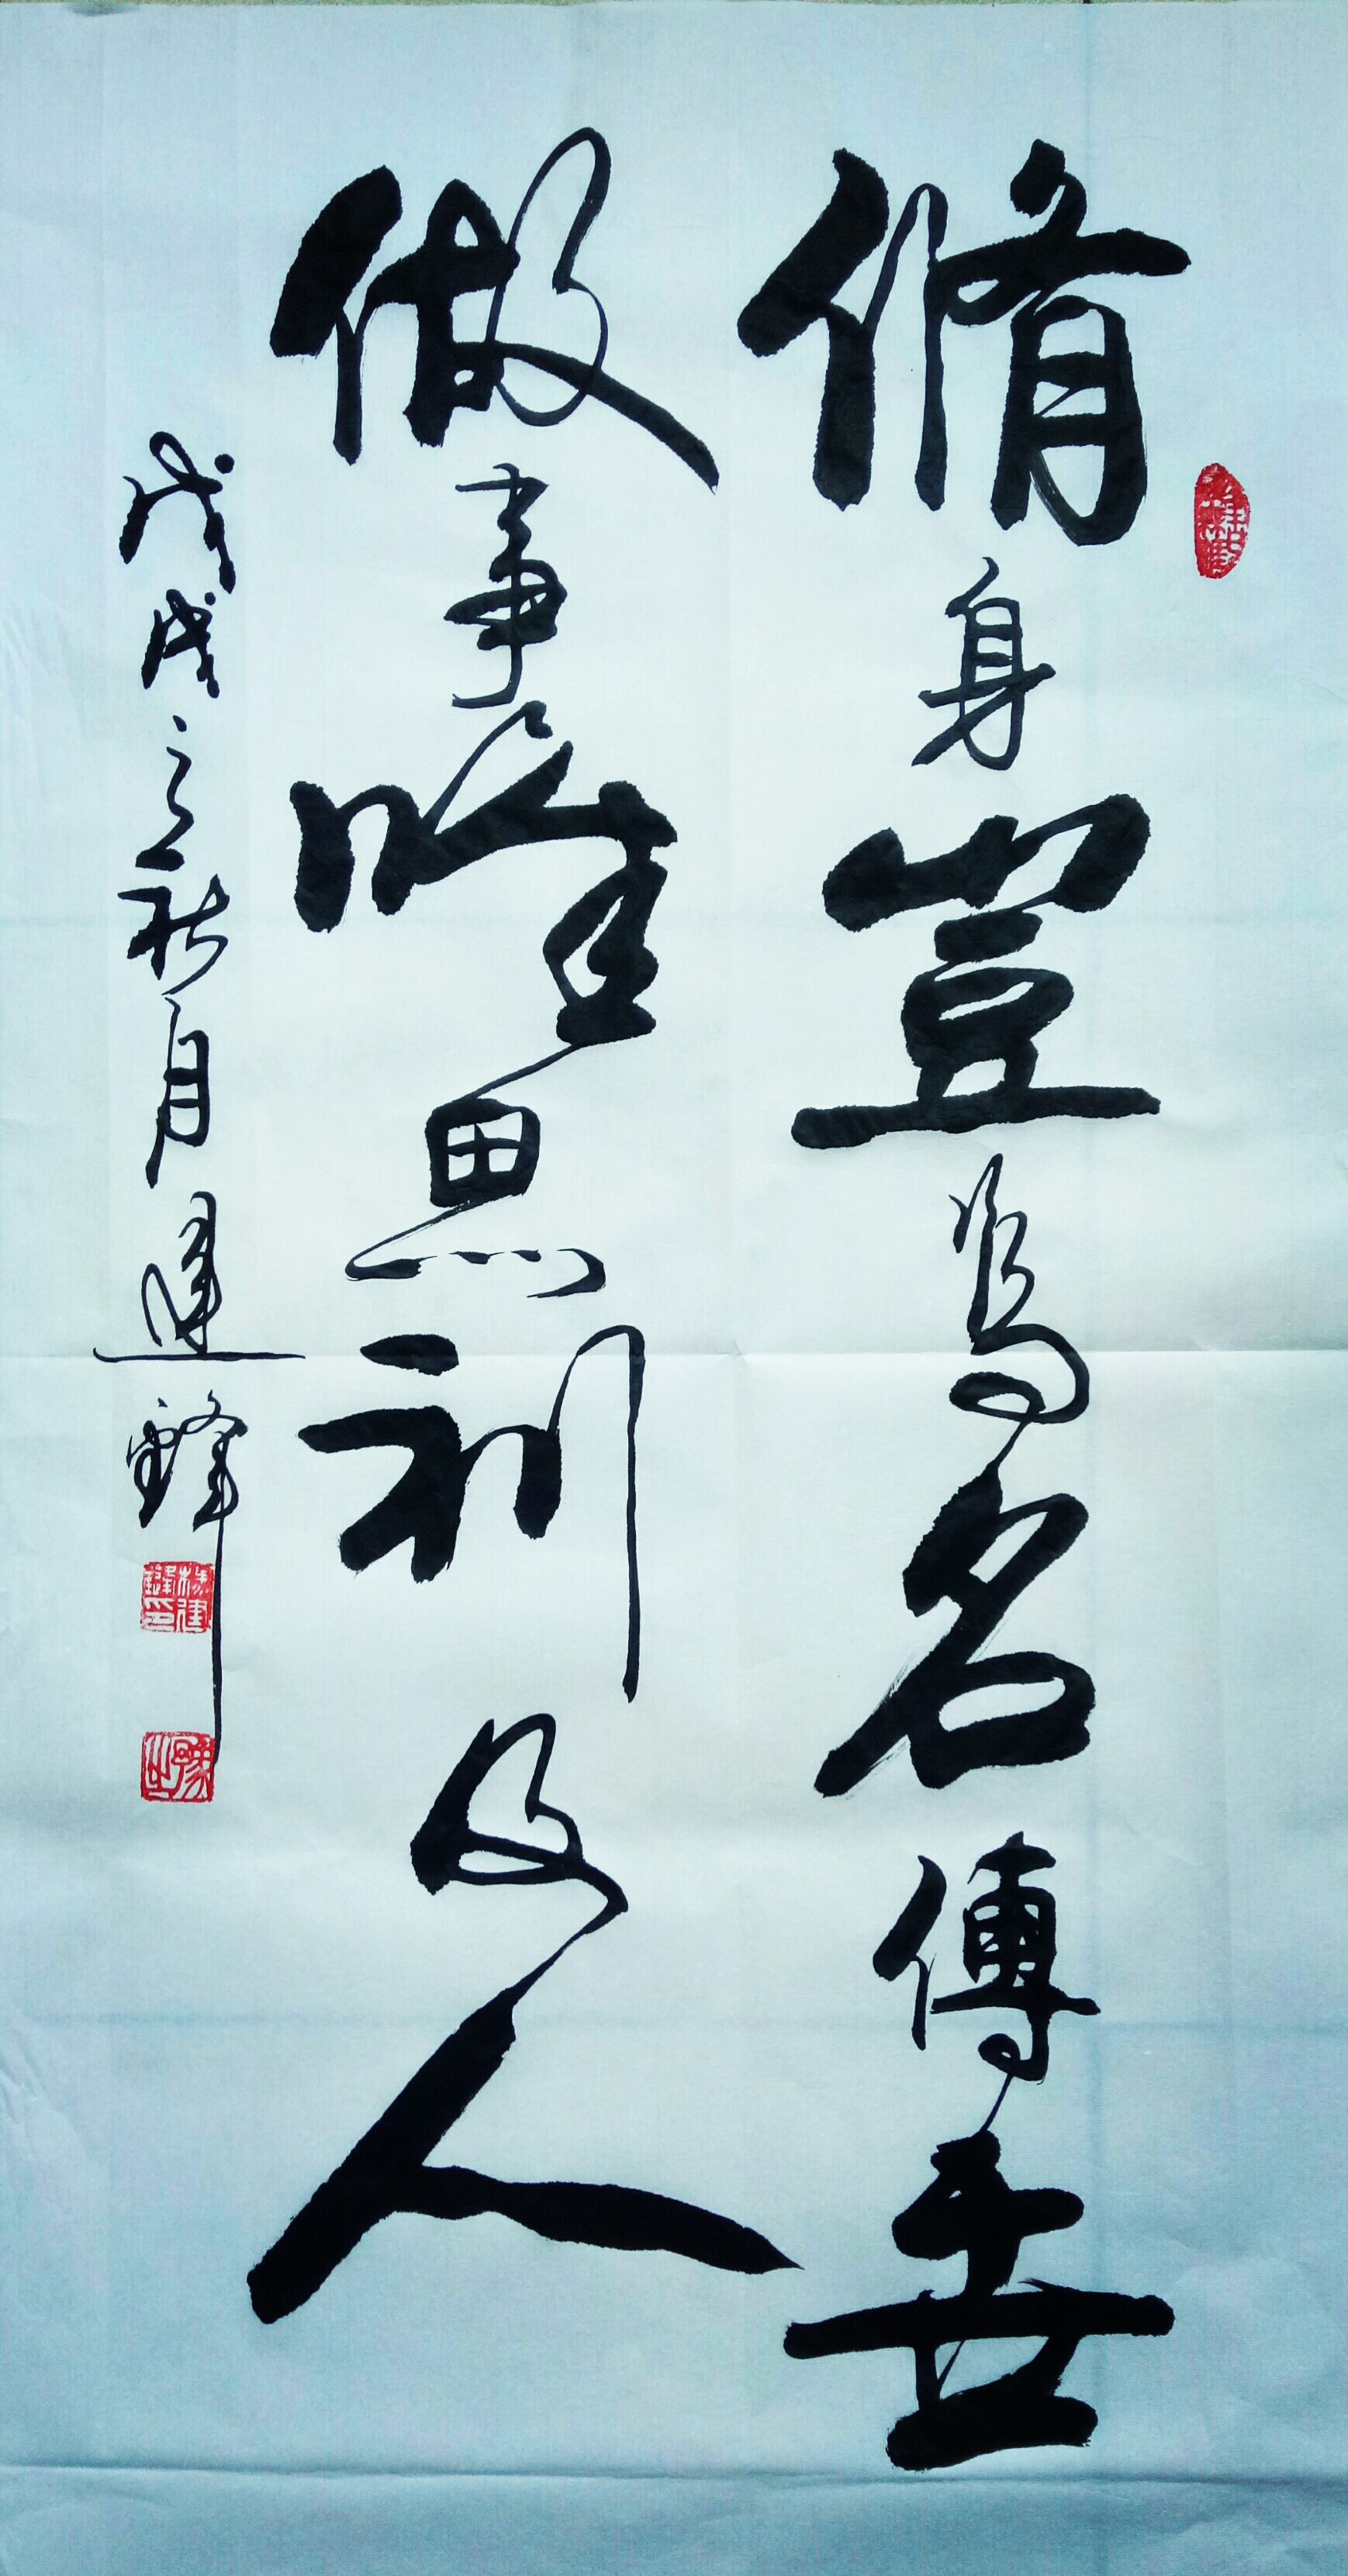 脩身豈為名傳世
做事唯思利及人
戊戌之秋月建鋒
楊建鋒印